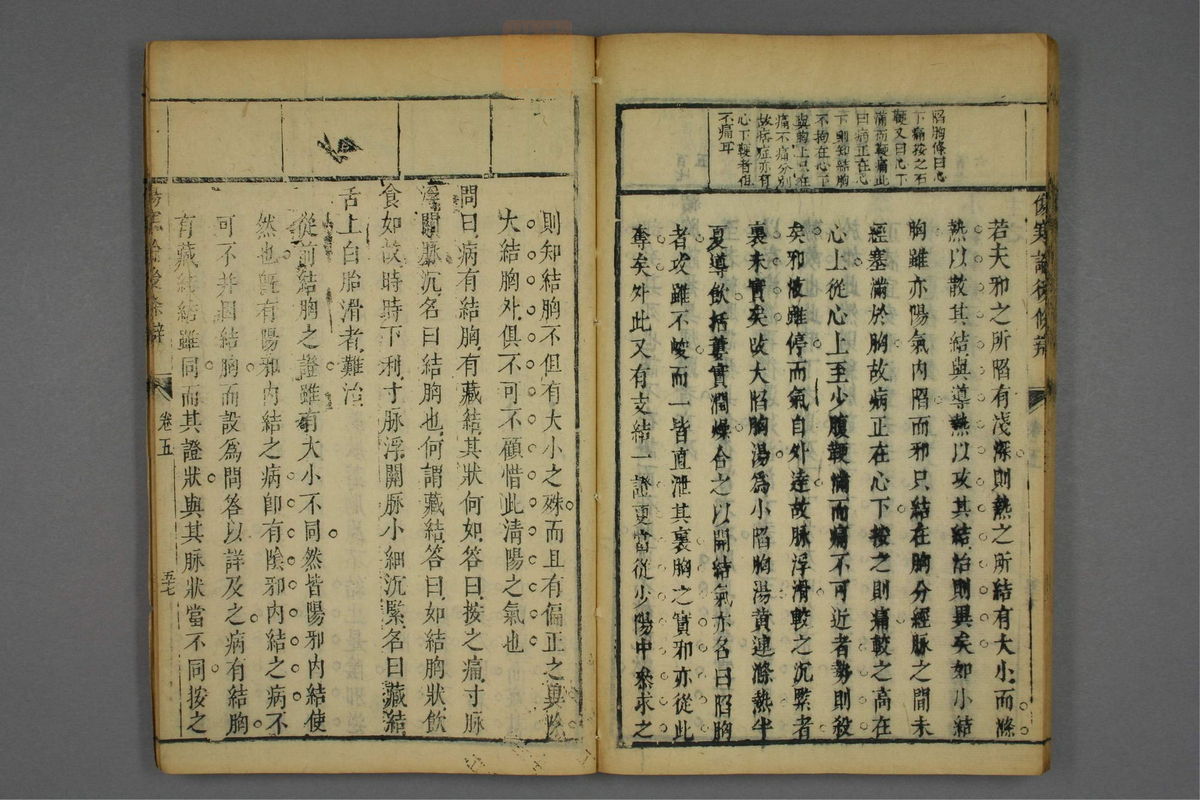 傷寒論後條辨
陷胸條曰心
下痛按之石
鞕又曰心下
滿而鞕痛此
曰病正在心
下則知結胸
不拘在心下
與胸上只在
痛不痛分別
故痞症亦有
心下鞕者但
不痛耳
若夫邪之所陷有淺深則熱之所結有大小而滌
熱以散其結與導熱以攻其結治則異矣如小結
胸雖亦陽氣內陷而邪只結在胸分經脉之間未
經塞滿於胸故病正在心下按之則痛較之高在
心上從心上至少腹鞕滿而痛不可近者勢則殺
矣邪液雖停而氣自外達故脉浮滑較之沉緊者
裏未實矣改大陷胸湯爲小陷胸湯黃連滌熱半
夏導飲括蔞實潤燥合之以開結氣亦名曰陷胸
者攻雖不峻而一皆直泄其裏胸之實邪亦從此
奪矣外此又有支結一證更當從少陽中參求之
則知結胸不但有大小之殊而且有偏正之異除
大結胸外俱不可不顧惜此清陽之氣也
問曰病有結胸有藏結其狀何如答曰按之痛寸脉
浮關脉沉名曰結胸也何謂藏結答曰如結胸狀飲
食如故時時下利寸脉浮關脉小細沉緊名曰藏結
舌上白胎滑者難治
從前結胸之證雖有大小不同然皆陽邪內結使
然也旣有陽邪內結之病卽有陰邪內結之病不
可不并因結胸而設爲問答以詳及之病有結胸
有藏結結雖同而其證狀與其脉狀當不同按之
傷寒論後條辨
卷五
五七